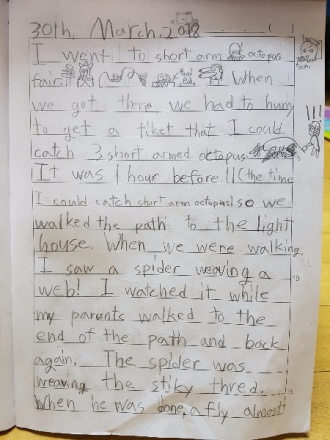 30th, March, 2018
I went to short arm octopus
fair!!! When
we got there we had to hurry
to get a tiket that I could
catch 3 short armed octopus
It was 1 hour before 11 (the time
I could catch short arm octopus) so we
walked the path to the light
house. When we were walking,
I saw a spider weaving a
web! I watched it while
my parents walked to the
end of the path and back
again. The spider was
weaving the stiky thred.
When he was done, a fly almost